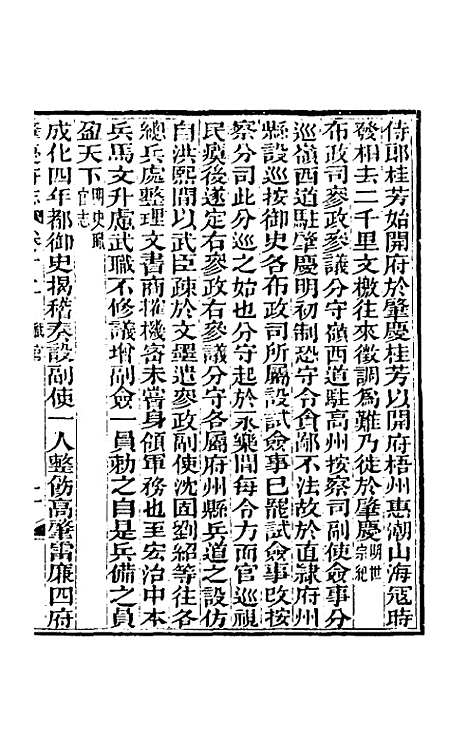 侍郎桂芳始開府於肇慶桂芳以開府梧州惠潮山海寇時
發相去二千里文檄往來徵調為難乃徙於肇慶明世宗紀
布政司參政參議分守嶺西道駐高州按察司副使僉事分
巡嶺西道駐肇慶明初制恐守令貪鄙不法故於直隸府州
縣設巡按御史各布政司所屬設試僉事已罷試僉事改按
察分司此分巡之始也分守起於永樂間每令方面官巡視
民瘼後遂定右參政右參議分守各屬府州縣兵道之設仿
自洪熙間以武臣疎於文墨遣參政副使沈固劉紹等往各
總兵處整理文書商榷機密未嘗身領軍務也至宏治中本
兵馬文升慮武職不修議增副僉一員勅之自是兵備之員
盈天下明史職官志
成化四年都御史揭稽奏設副使一人整飭高肇雷廉四府